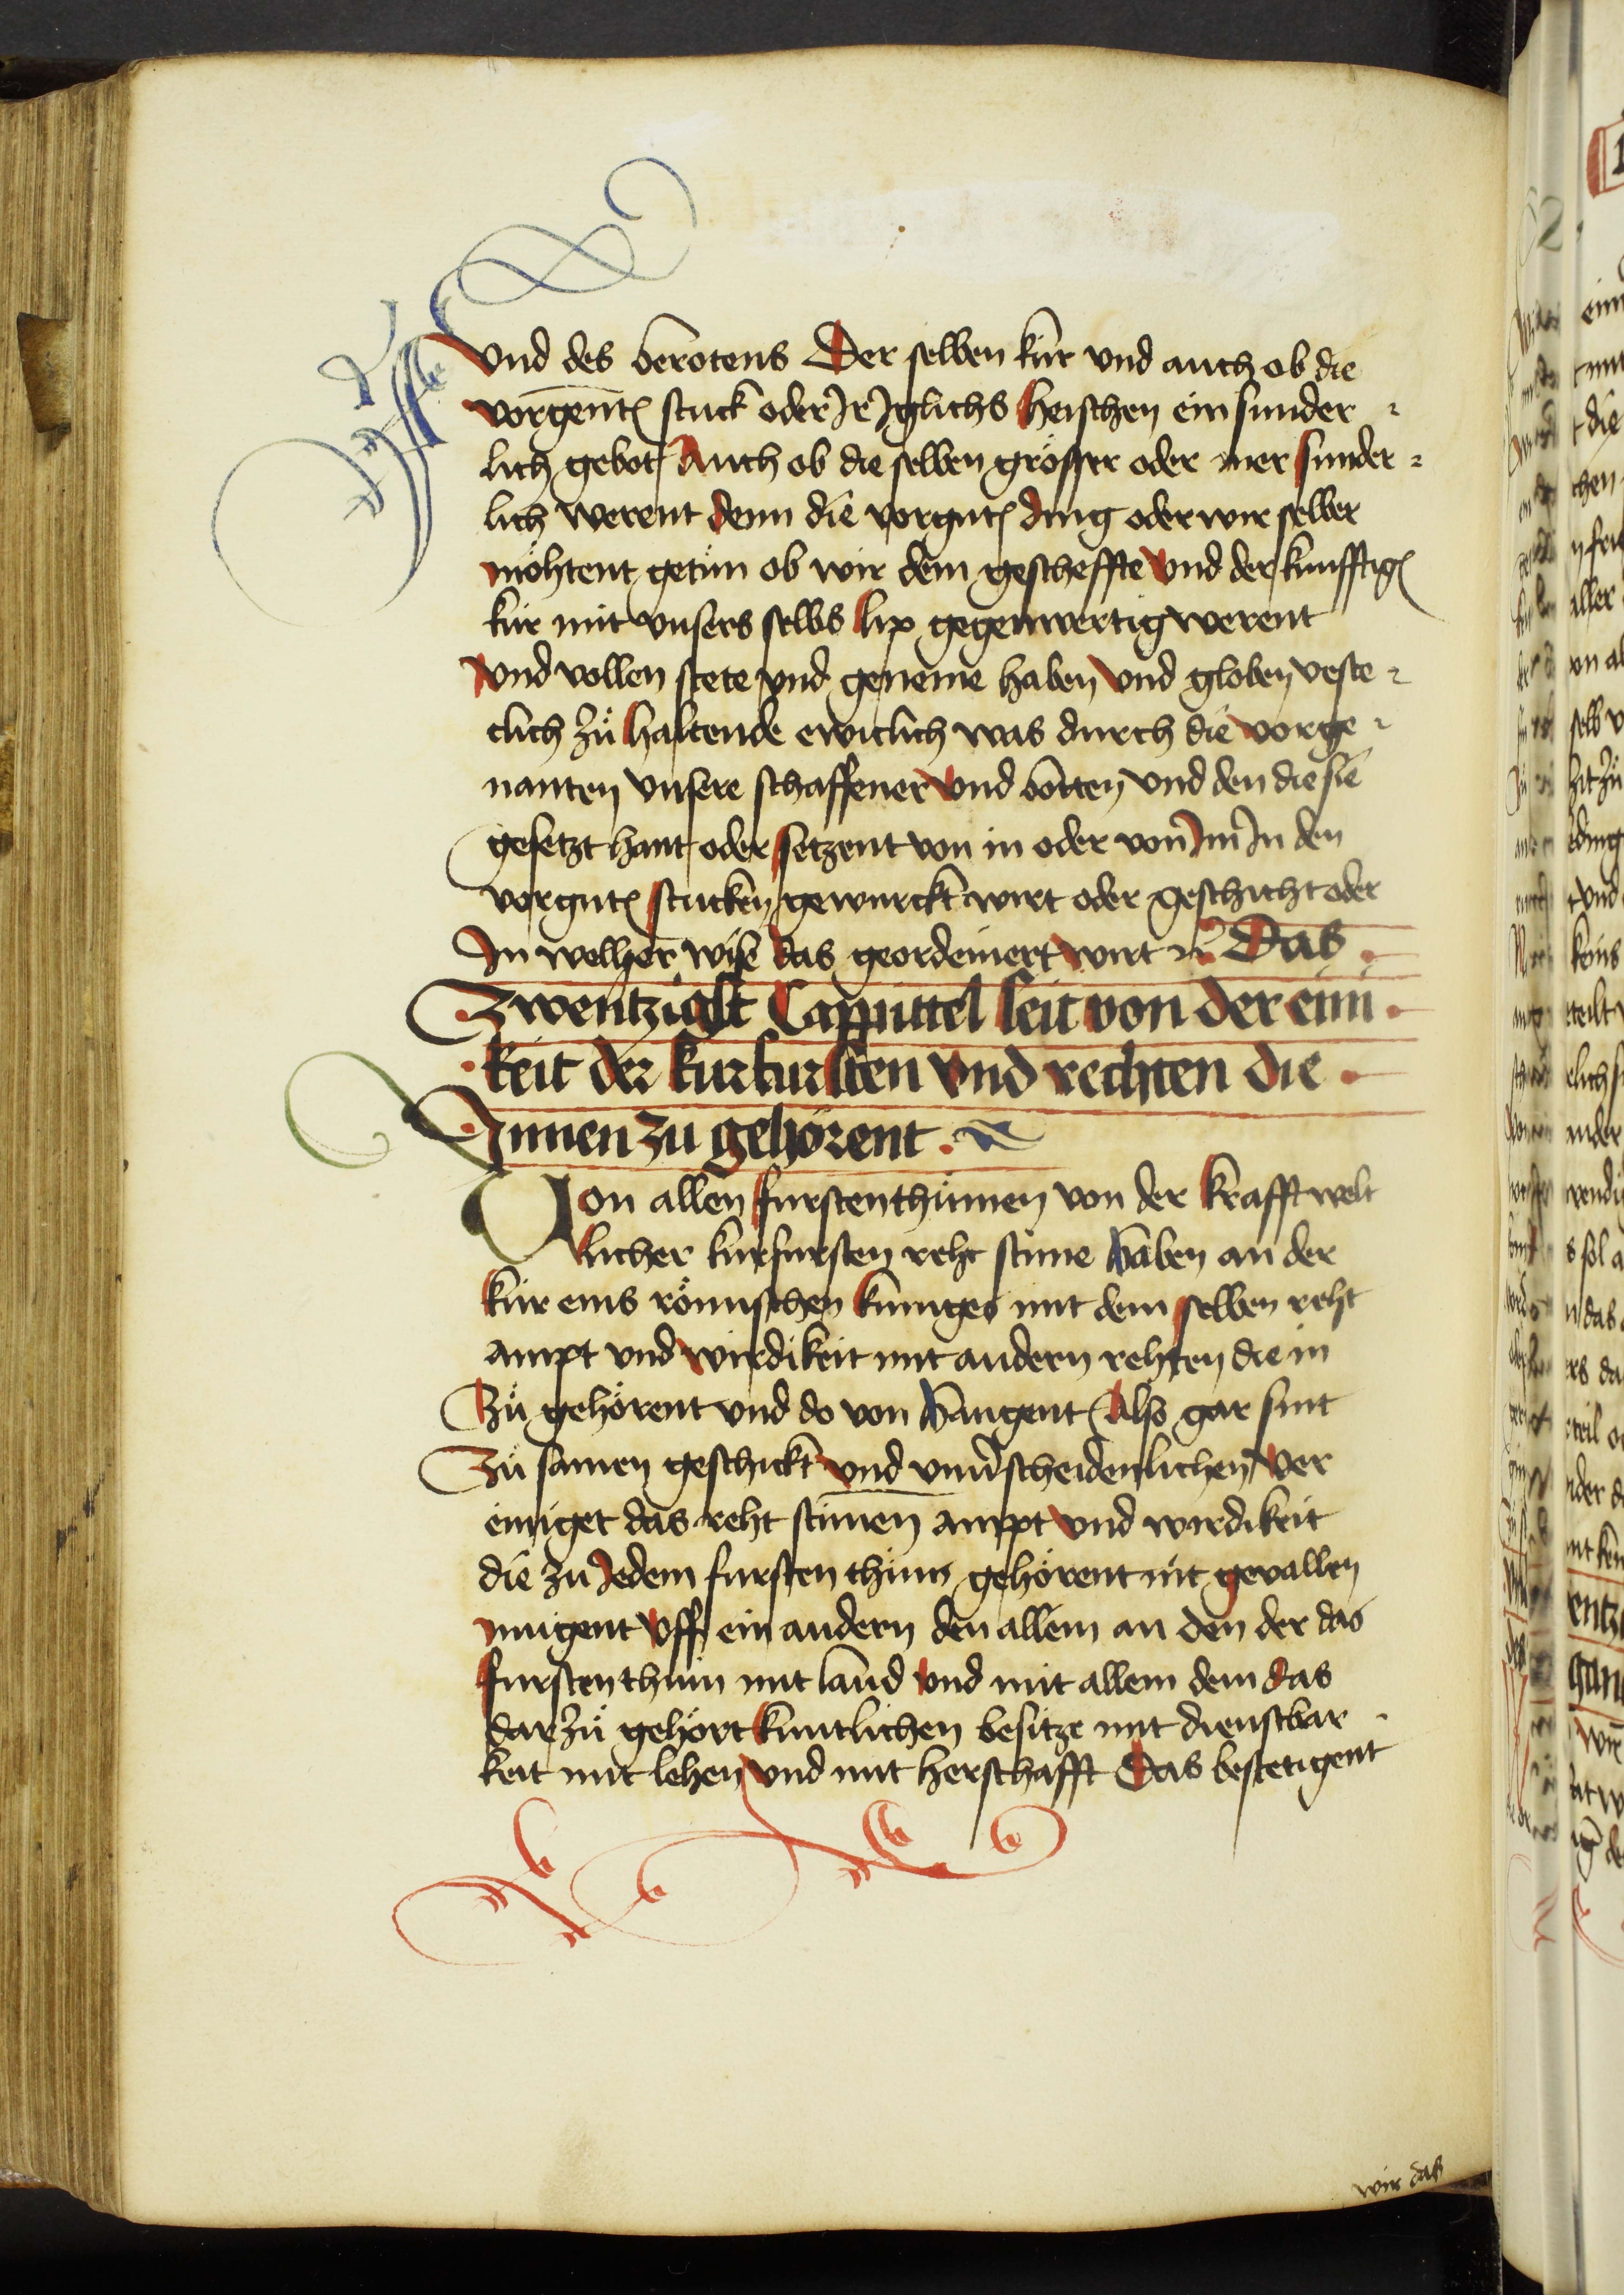 Vnd des berotens Der selben kúr vnd auch ob die
vorgenten stuck oder Ir Iglichs heischen ein sunder
lich gebot Auch ob die selben grösser oder mer sunder
lich werent denn die vorgnten ding oder wir selber
möhtent getún ob wir dem gescheffte Vnd der kunfftigen
kúr mit vnsers selbs lip gegenwertig werent
Vnd vollen stete vnd geneme haben Vnd globen veste
clich zů haltende ewiclich was durch die vorge
nanten Vnsere schaffener Vnd botten vnd den die sie
gesetzt hant oder setzent von in oder von Im In den
vorgnten stucken gewurckt wirt oder geschicht oder
In welher wise das geordeniert wirt ꝛc Das
Zwentzigst Cappittel seit von der eini
keit der kurfursten vnd rechten die
Innen zu gehörent
Von allen furstenthúmen von der krafft welt
licher kurfursten reht stime haben an der
kúr eins römischen kuniges mit dem selben reht
ampt vnd wirdikeit mit andern rehten die in
Zů gehörent vnd do von hangent Also gar sint
Zů samen geschickt vnd vnuerscheidenlichen ver
einiget das reht stimen ampt vnd wirdikeit
die zu Iedem fursten thúm gehörent nit gevallen
mugent vff ein andern den allein an den der das
furstenthúm mit land vnd mit allem dem das
dar zů gehört kuntlichen besitze mit dienstbar
keit mit lehen vnd mit herschafft Das bestetigent
wir das